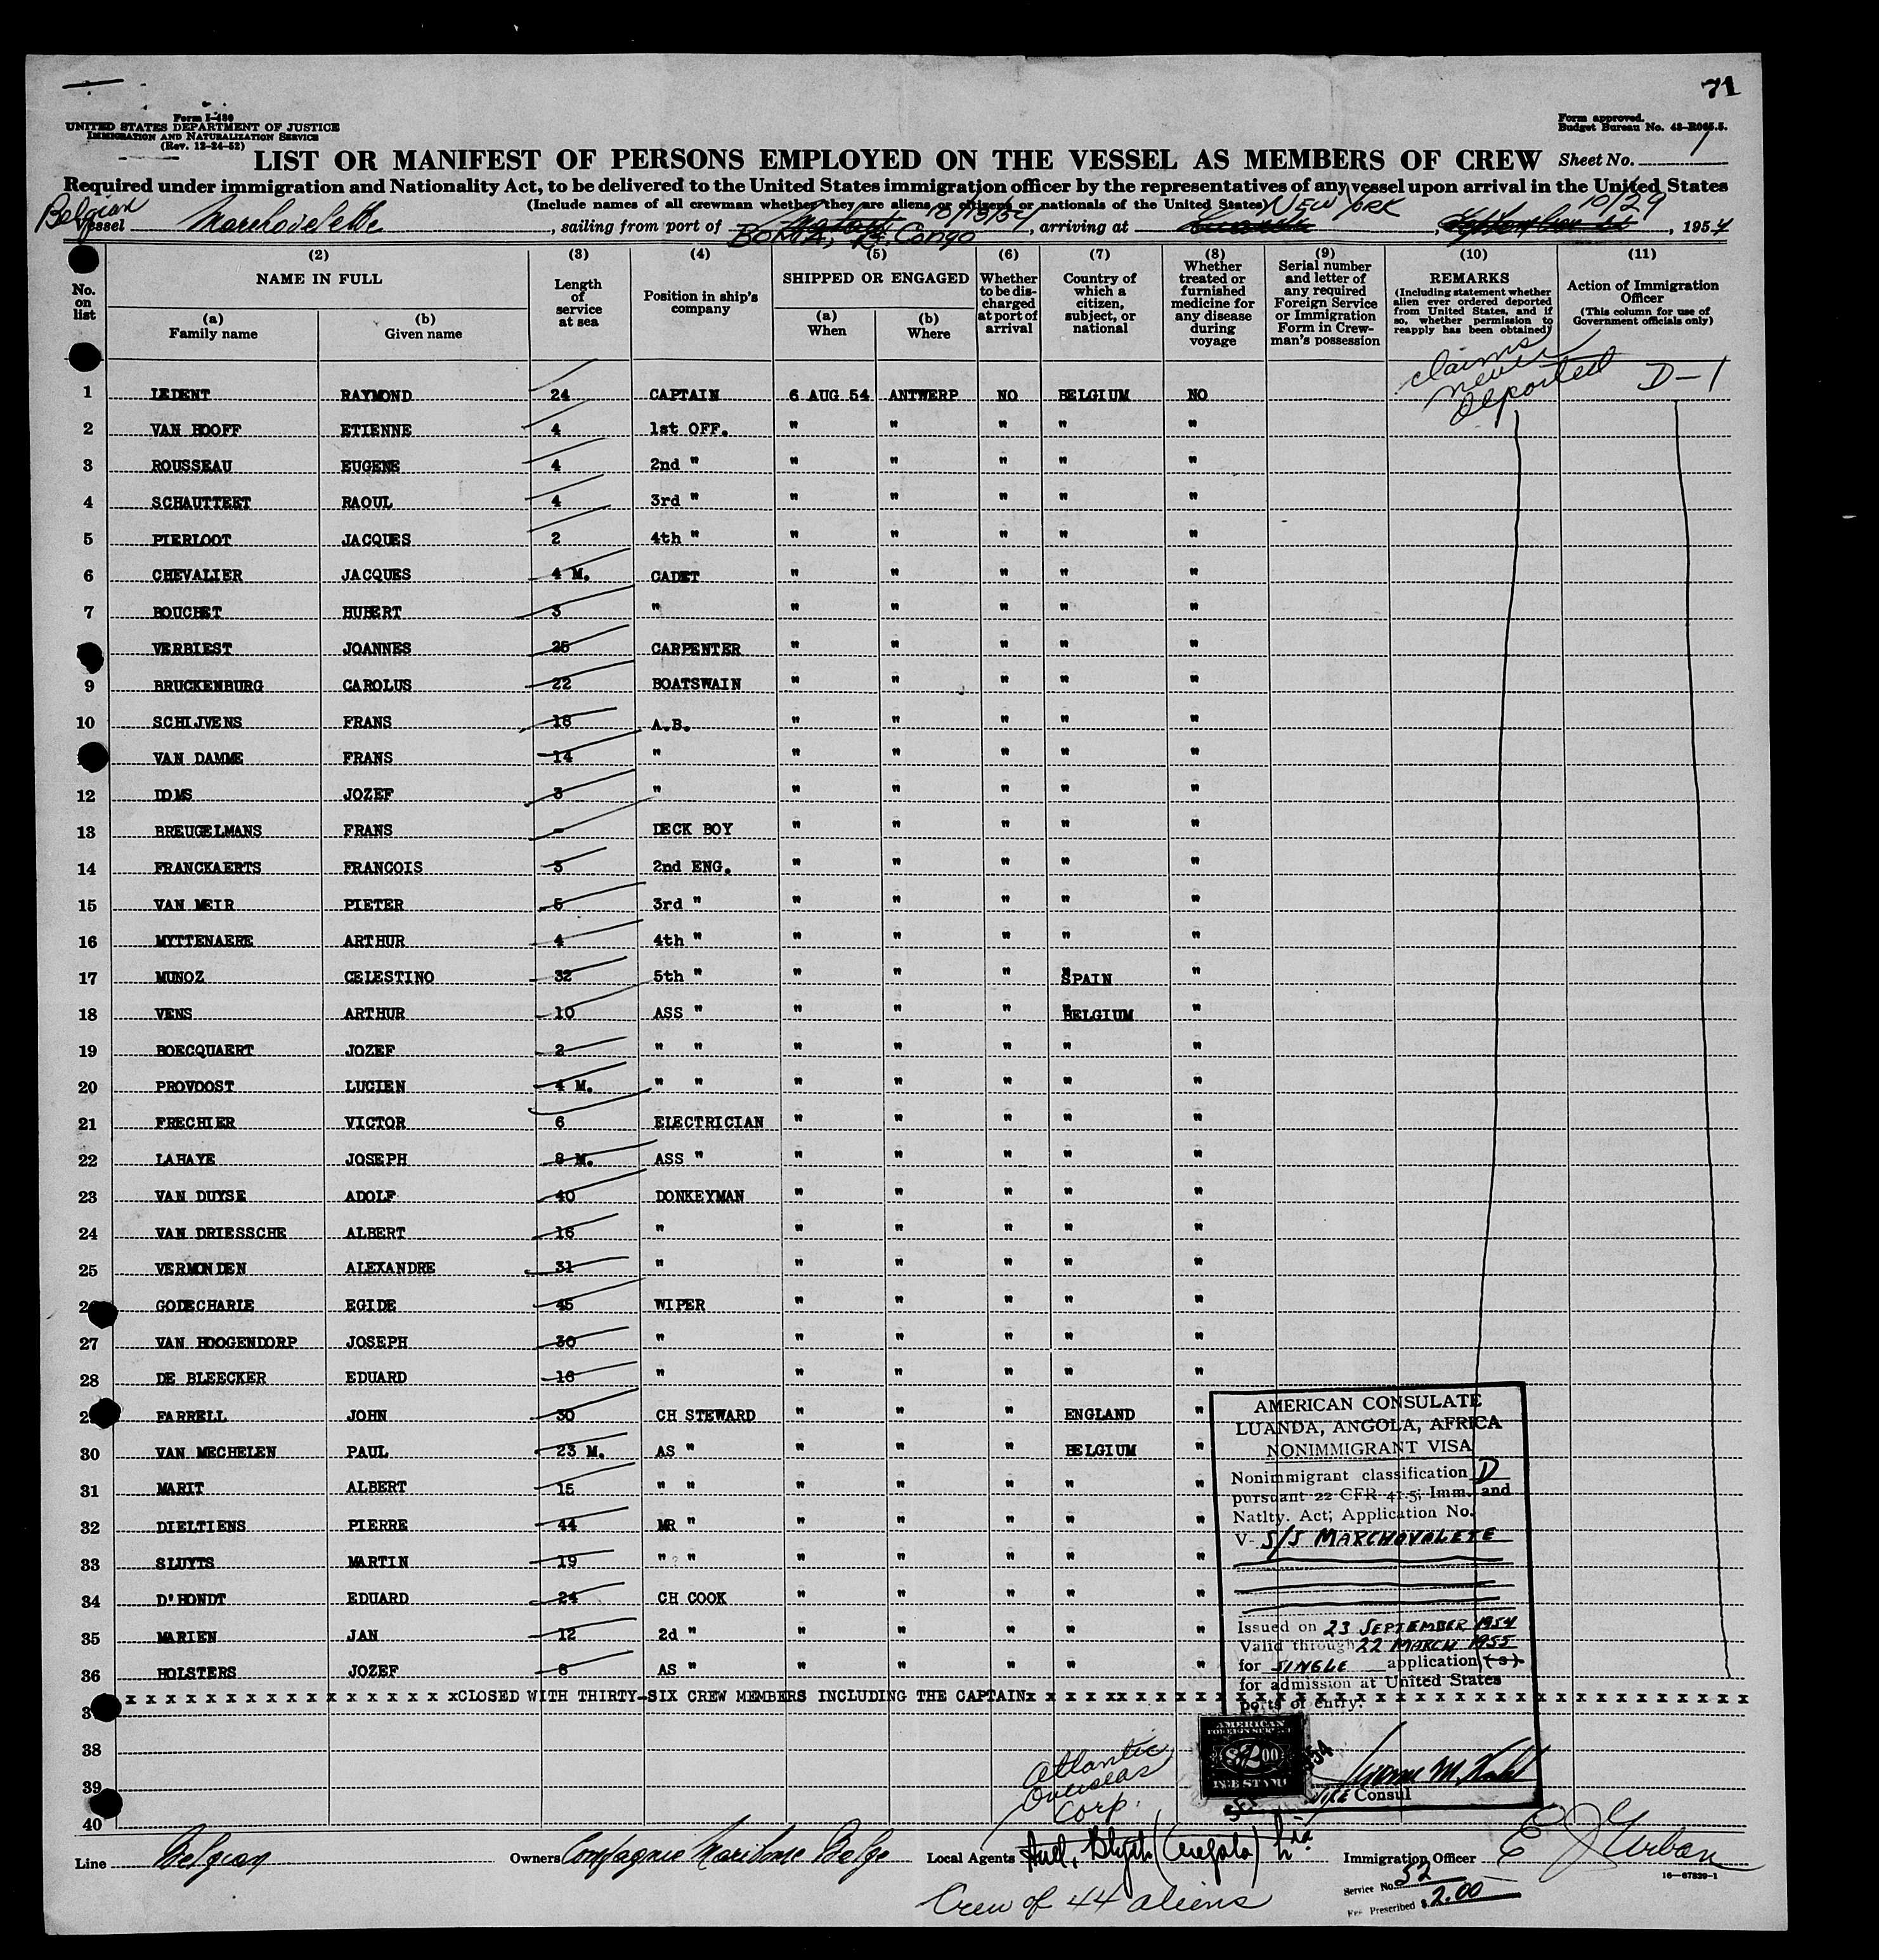 71
Form I-480
UNITED STATES DEPARTMENT OF JUSTICE
IMMIGRATION AND NATURALIZATION SERVICE
(Rev. 12-24-52)
Form approved.
Budget Bureau No. 43-R065.5.
LIST OR MANIFEST OF PERSONS EMPLOYED ON THE VESSEL AS MEMBERS OF CREW Sheet No. 1
Required under immigration and Nationality Act, to be delivered to the United States immigration officer by the representatives of any vessel upon arrival in the United States
(Include names of all crewman whether they are aliens or citizens or nationals of the United States)
Belgian 10/13/54 NEW YORK 10/29
Vessel , sailing from port of BOMA, B. Congo , arriving at , 1954
No. on list
(2) NAME IN FULL
(a) Family name
(b) Given name
(3) Length of service at sea
(4) Position in ship's company
(5) SHIPPED OR ENGAGED
(a) When
(b) Where
(6) Whether to be discharged at port of arrival
(7) Country of which a citizen, subject, or national
(8) Whether treated or furnished medicine for any disease during voyage
(9) Serial number and letter of any required Foreign Service or Immigration Form in Crewman's possession
(10) REMARKS (Including statement whether alien ever ordered deported from United States, and if so, whether permission to reapply has been obtained)
(11) Action of Immigration Officer (This column for use of Government officials only)
claims never deported D-1
1 LEDENT RAYMOND 24 CAPTAIN 6 AUG 54 ANTWERP NO BELGIUM NO
2 VAN HOOFF ETIENNE 4 1st OFF. " " " " "
3 ROUSSEAU EUGENE 4 2nd " " " " " "
4 SCHAUTTEET RAOUL 4 3rd " " " " " "
5 PIERLOOT JACQUES 2 4th " " " " " "
6 CHEVALIER JACQUES 4 M. CADET " " " " "
7 BOUCHET HUBERT 3 " " " " " "
VERBIEST JOANNES 25 CARPENTER " " " " "
9 BRUCKENBURG CAROLUS 22 BOATSWAIN " " " " "
10 SCHIJVENS FRANS 18 A.B. " " " " "
VAN DAMME FRANS 14 " " " " " "
12 DOMS JOZEF 3 " " " " " "
13 BREUGELMANS FRANS - DECK BOY " " " " "
14 FRANCKAERTS FRANCOIS 3 2nd ENG. " " " " "
15 VAN MEIR PIETER 5 3rd " " " " " "
16 MYTTENAERE ARTHUR 4 4th " " " " " "
17 MUNOZ CELESTINO 32 5th " " " " SPAIN "
18 VENS ARTHUR 10 ASS " " " " BELGIUM "
19 BOECQUAERT JOZEF 2 " " " " " " "
20 PROVOOST LUCIEN 4 M. " " " " " " "
21 FRECHIER VICTOR 6 ELECTRICIAN " " " " "
22 LAHAYE JOSEPH 8 M. ASS " " " " " "
23 VAN DUYSE ADOLF 40 DONKEYMAN " " " " "
24 VAN DRIESSCHE ALBERT 16 " " " " " "
25 VERMONDEN ALEXANDRE 31 " " " " " "
26 GODECHARLE EGIDE 45 WIPER " " " " "
27 VAN HOOGENDORP JOSEPH 30 " " " " " "
28 DE BLEECKER EDUARD 16 " " " " " "
2 FARRELL JOHN 30 CH STEWARD " " " ENGLAND "
30 VAN MECHELEN PAUL 23 M. AS " " " " BELGIUM "
31 MARIT ALBERT 15 " " " " " " "
32 DIELTIENS PIERRE 44 MR " " " " " "
33 SLUYTS MARTIN 19 " " " " " " "
34 D'HONDT EDUARD 24 CH COOK " " " " "
35 MARIEN JAN 12 2d " " " " " "
36 HOLSTERS JOZEF 8 AS " " " " " "
x x x x x x x x x x x x x x x x x xCLOSED WITH THIRTY-SIX CREW MEMBERS INCLUDING THE CAPTAINx x x x xx x x x x x x x x x x x x x x x x x x x x x x x x x x x x x x x x
3
38
39
40
AMERICAN CONSULATE
LUANDA, ANGOLA, AFRICA
NONIMMIGRANT VISA
Nonimmigrant classification D
pursuant 22 CFR 41.5; Imm. and
Natlty. Act; Application No.
V- S/S MARCHOVALETE
Issued on 23 SEPTEMBER 1954
Valid through 22 MARCH 1955
for SINGLE application (s)
for admission at United States
ports of entry.
AMERICAN
FOREIGN SERVICE
$2.00
FEE STAMP
VICE Consul
Atlantic
Overseas
Corp.
Line Belgian Owners Compagnie Maritime Belge Local Agents Hull, Blyth (Angola) Immigration Officer E J Urban
16-67839-1
Crew of 44 aliens
Service No. 52
Fee Prescribed $ 2.00